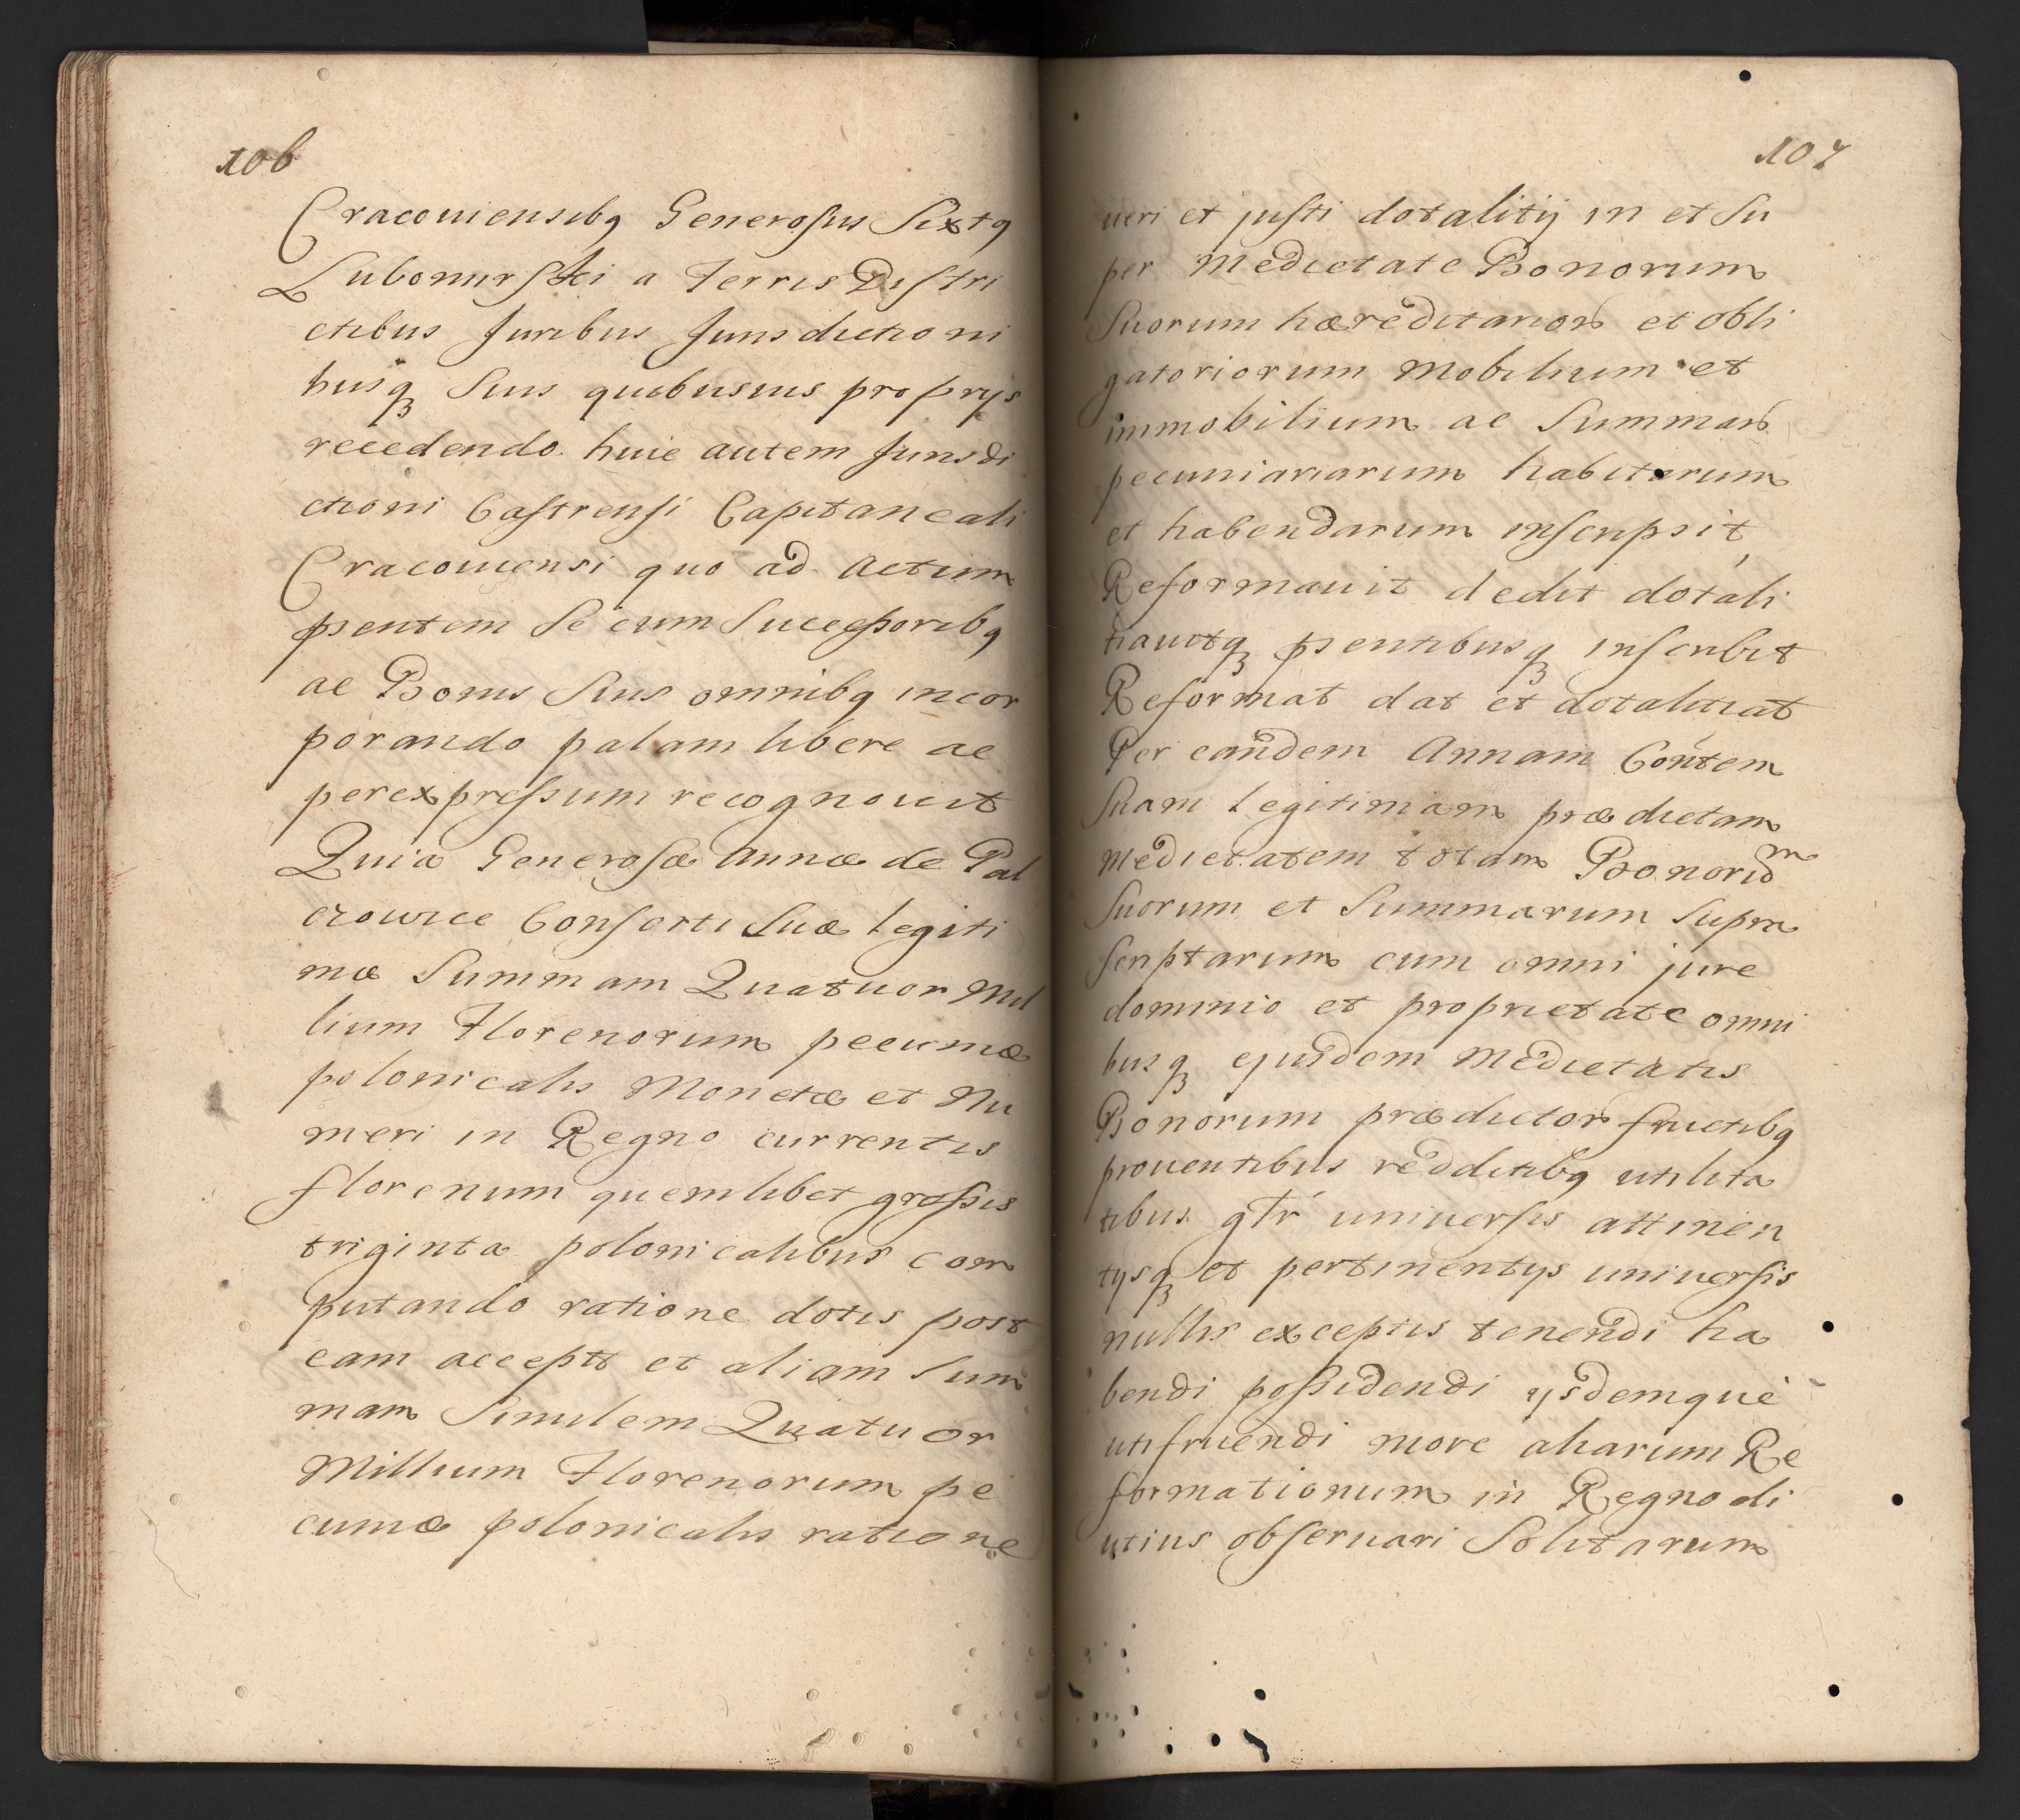 106
Craconiensibq Generosus Sixtq
Lubomirski a Terris Distri
ctibus Juribus Jurisdictioni
busq Suis quibusuis proprijs
recedendo huic autem Jurisdi
ctioni Castrensi Capitaneali
Cracouiensi quo ad Actum
pſentem Se cum Succeſsoribq
ac Bonis Suis omnibq incor
porando palam libere ac
per expreſsum recognouit
Quia Generosæ Annæ de Pal
czowice Consorti Suæ legiti
mæ Summam Quatuor Mil
lium Florenorum pecuniæ
polonicalis Monetæ et Nu
meri in Regno currentis
florenum quemlibet groſsis
triginta polonicalibus com
putando ratione dotis post
eam acceptæ et aliam Sum
mam Similem Quatuor
Millium Florenorum pe
cuniæ polonicalis ratione
107
ueri et justi dotalitij in et Su
per Medietate Bonorum
Suorum hæreditarior et obli
gatoriorum Mobilium et
immobilium ac Summar
pecuniariarum habitarum
et habendarum inscripsit
Reformauit dedit dotali
tiauitq pſentibusq inscribit
Reformat dat et dotalitiat
Per eandem Annam Contem
Suam legitimam prædictam
Medietatem totam Bonorum
Suorum et Summarum Supra
scriptarum cum omni jure
dominio et proprietate omni
busq ejusdem Medietatis
Bonorum prædictor fructibq
prouentibus redditibq utilita
tibus gtr uniuersis attinen
tijsq et pertinentijs uniuersis
nullis exceptis tenendi ha
bendi poſsidendi ijsdemque
utifruendi more aliarum Re
formationum in Regno di
utius obseruari Solitarum